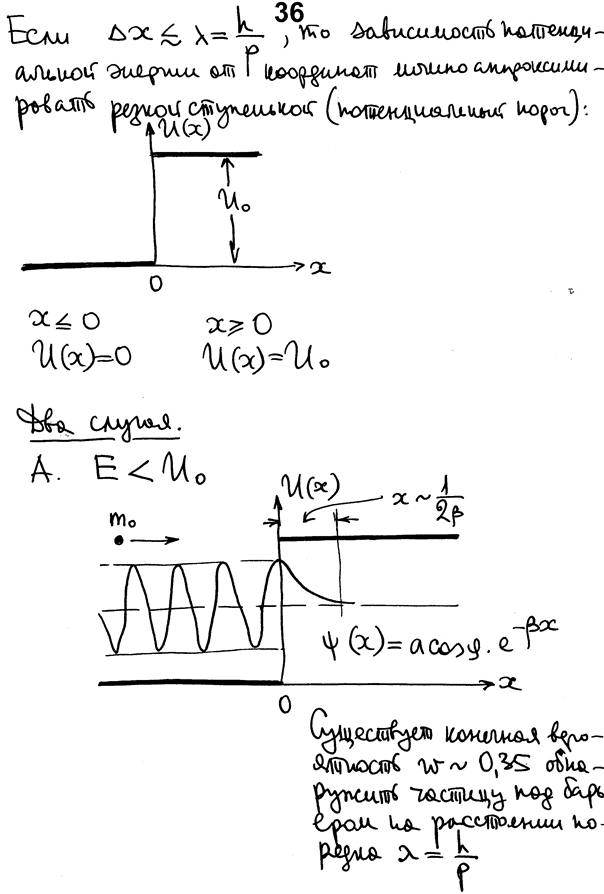 36
Если Δx ≲ λ = h/p, то зависимость потенци-
альной энергии от координат можно аппроксими-
ровать резкой ступенькой (потенциальный порог):
U(x)
U₀
x
0
x ≤ 0 x ≥ 0
U(x)=0 U(x)=U₀
Два случая.
A. E < U₀
U(x) x ~ 1/2β
m₀
ψ(x) = a cosφ · e^{-βx}
x
0
Существует конечная веро-
ятность w ~ 0,35 обна-
ружить частицу под барь
ером на расстоянии по-
рядка λ = h/p